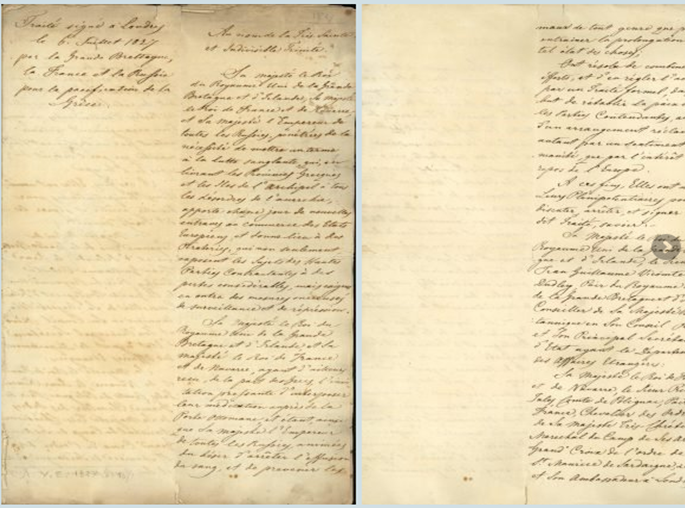 Traité signé à Londres
le 6. Juillet 1827
par la Grande Bretagne,
la France et la Russie
pour la pacification de la
Grèce.
Au nom de la Très Sainte
et Indivisible Trinité.
Sa Majesté le Roi
du Royaume Uni de la Grande
Bretagne et d'Irlande, Sa Majesté
le Roi de France et de Navarre,
et Sa Majesté l'Empereur de
toutes les Russies, pénétrés de la
nécessité de mettre un terme
à la lutte sanglante, qui, en
livrant les Provinces Grecques
et les Iles de l'Archipel à tous
les désordres de l'anarchie,
apporte chaque jour de nouvelles
entraves au commerce des Etats
Européens et donne lieu à des
Pirateries, qui non seulement
exposent les Sujets des Hautes
Parties Contractantes à des
pertes considérables, mais exigent
en outre des mesures onéreuses
de surveillance et de répression.
Sa Majesté le Roi du
Royaume Uni de la Grande
Bretagne et d'Irlande et Sa
Majesté le Roi de France
et de Navarre, ayant d'ailleurs
reçu, de la part des Grecs, l'invi
tation pressante d'interposer
leur médiation auprès de la
Porte Ottomane et étant, ainsi
que Sa Majesté l'Empereur
de toutes les Russies, animés
du désir d'arrêter l'effusion
du sang, et de prévenir les
maux de tout genre que p
entrainer la prolongation
tel état de choses,
Ont résolu de combiner
efforts, et d'en régler l'ac
par un Traité formel, da
but de rétablir la paix e
les Parties Contendantes, au
d'un arrangement réclam
autant par un sentiment
manité, que par l'intérêt
repos de l'Europe.
A ces fins, Elles ont n
Leurs Plénipotentiaires pou
discuter, arrêter, et signer
dit Traité, savoir:
Sa Majesté le
Royaume Uni de la Grande
gne et d'Irlande, le
Jean Guillaume Vicomte
Dudley Pair du Royaume
de la Grande Bretagne et d'
Conseiller de Sa Majesté
tannique en Son Conseil P
et Son Principal Secrétai
d'Etat ayant le Départem
des Affaires Etrangères:
Sa Majesté le Roi de F
et de Navarre, le
Jules, Comte de Polignac, Pair
France, Chevalier des Ord
de Sa Majesté Très Chrét
Maréchal de Camp de Ses Ar
Grand' Croix de l'ordre de
St. Maurice de Sardaigne,
et Son Ambassadeur à Lond